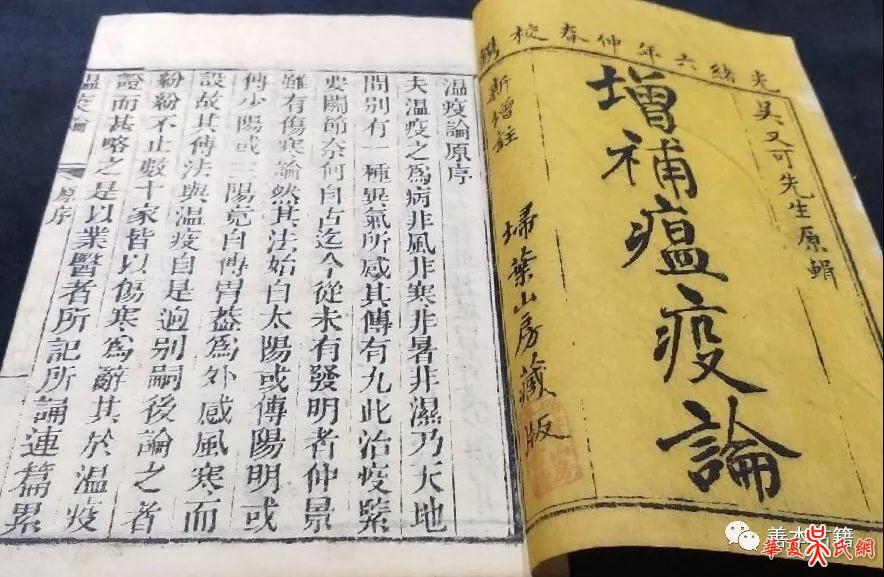 光緒六年仲春校鐫
吳又可先生原輯
增補瘟疫論
新增註
掃葉山房藏版
温疫論原序
夫温疫之爲病非風非寒非暑非濕乃天地
間別有一種異氣所感其傳有九此治疫緊
要關節奈何自古迄今從未有發明者仲景
雖有傷寒論然其法始自太陽或傳陽明或
傳少陽或三陽竟自傳胃葢爲外感風寒而
設故其傳法與温疫自是逈別嗣後論之者
紛紛不止數十家皆以傷寒爲辭其於温疫
證而甚畧之是以業醫者所記所誦連篇累
温疫論 原序
善本古籍
華夏吴氏網